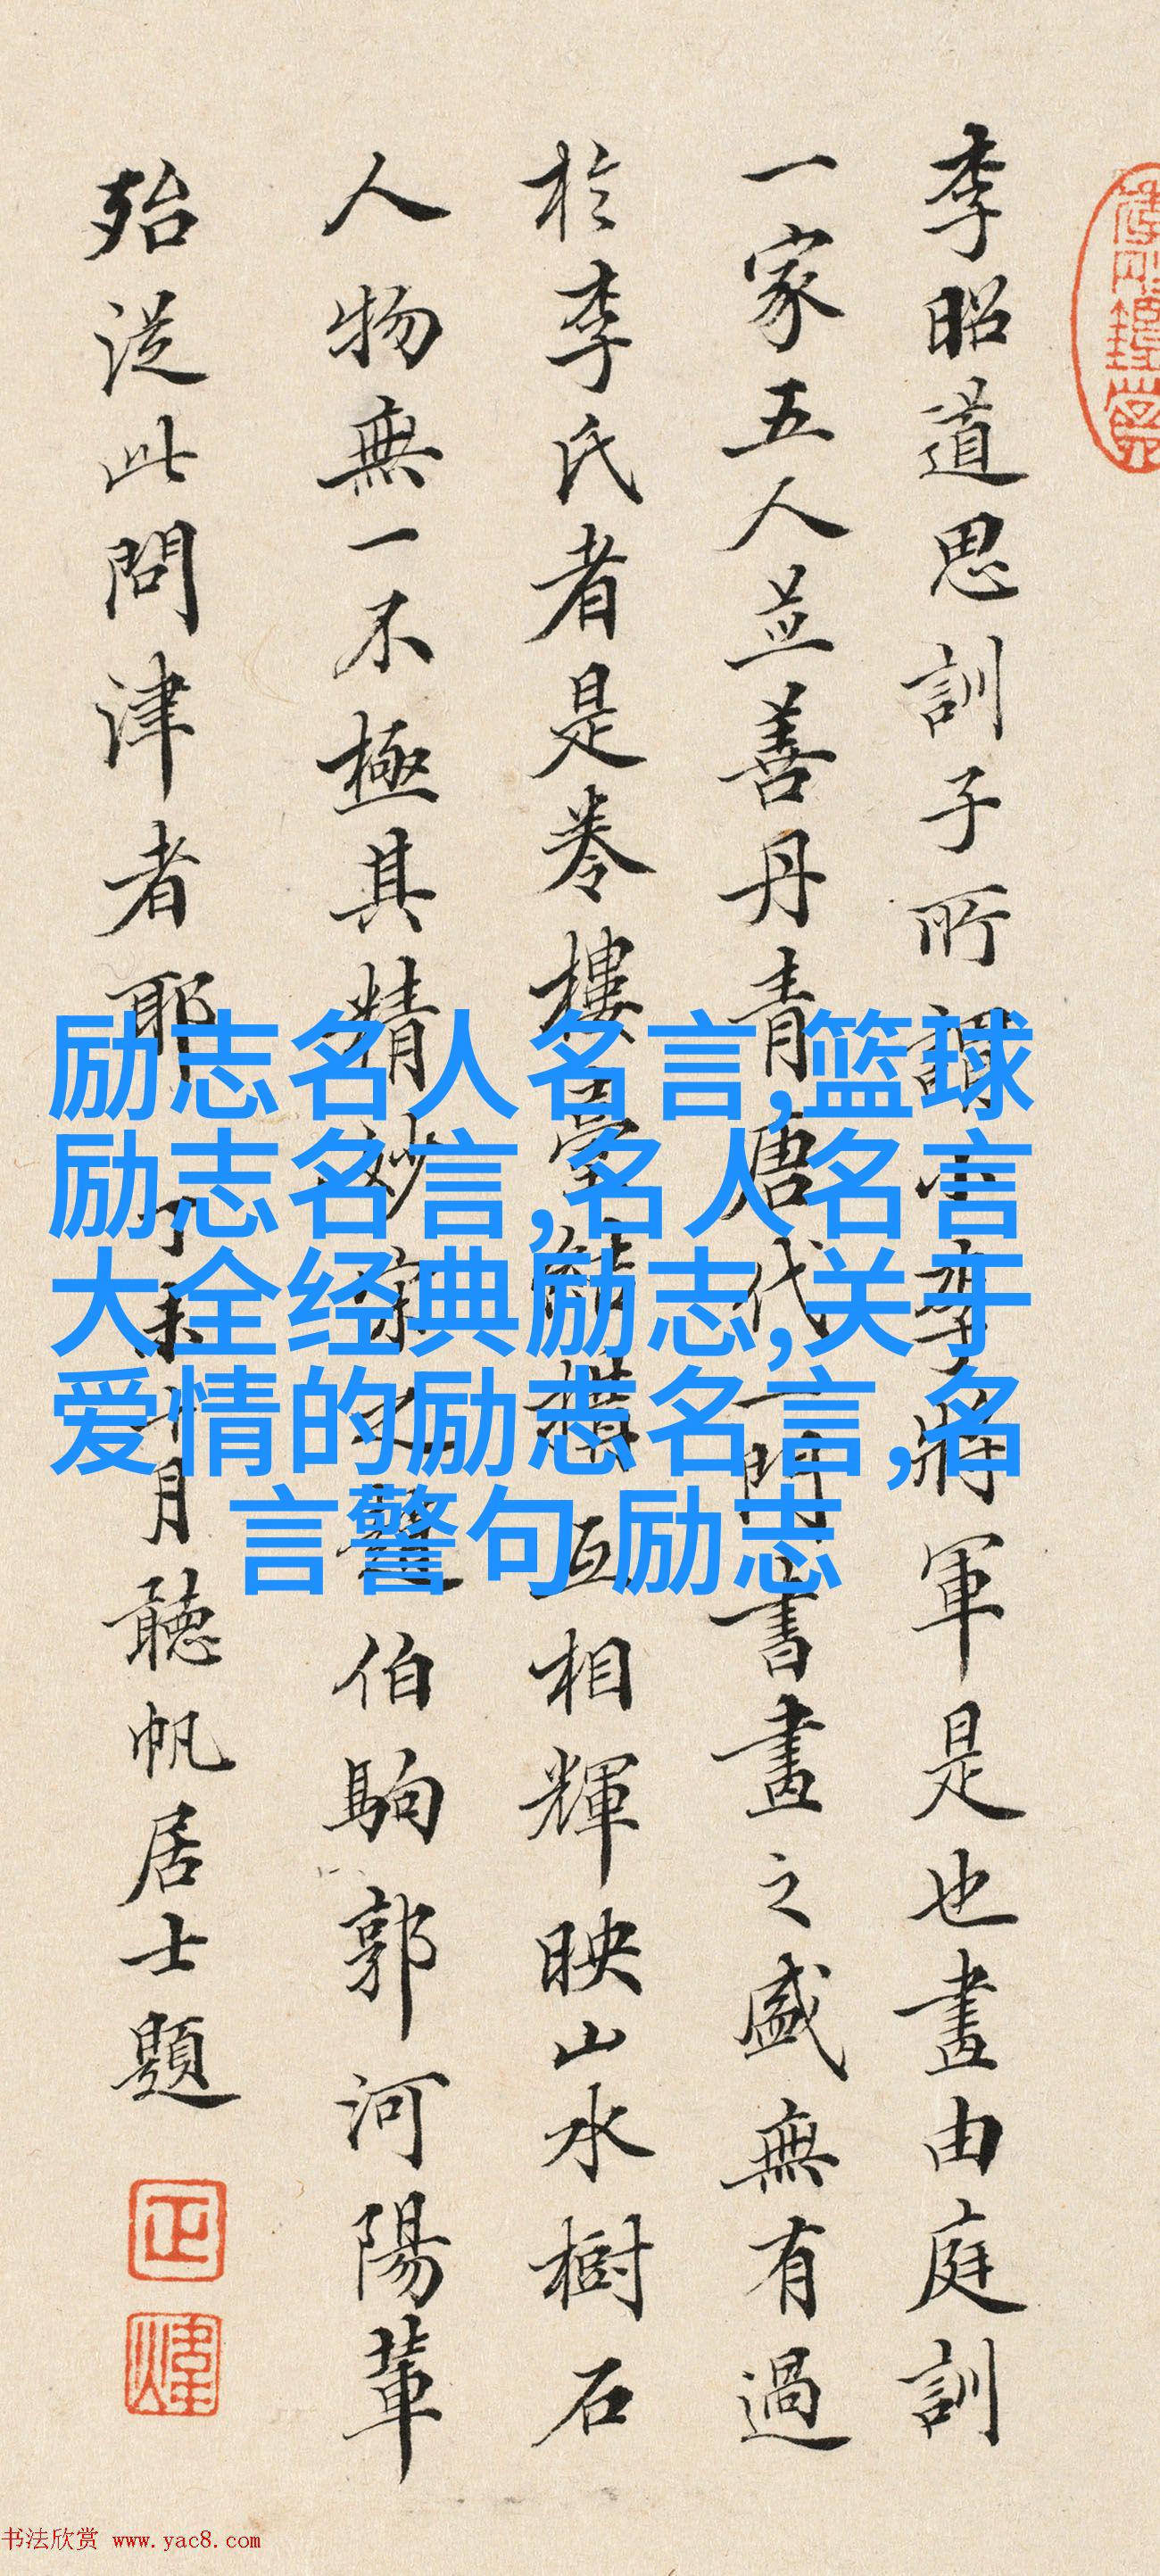 李昭道思訓子所謂小李將軍是也畫由庭訓
一家五人並善丹青唐代一門書畫之盛無有過
於李氏者是卷樓臺結構互相輝映山水樹石
人物無一不極其精妙宋之趙伯駒郭河陽輩
殆從此問津者耶 丁未十月聽帆居士題
正
煒
励志名人名言,篮球
励志名言,名人名言
大全经典励志,关于
爱情的励志名言,名
言警句 励志
书法欣赏 www.yac8.com